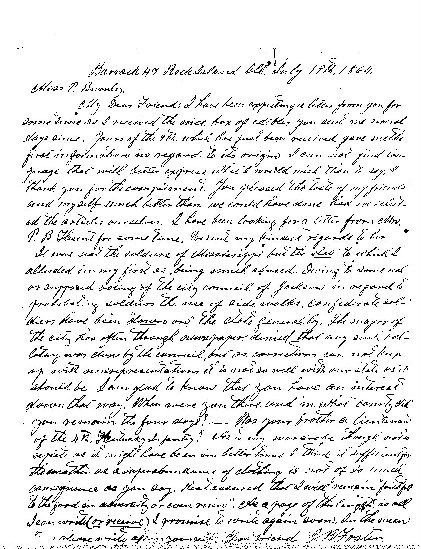 Barrack 47 Rock Island Ill. July 19th, 1864.
Miss P.
My Dear Friend: I have been expecting a letter from you for
some time as I received the nice box of edibles you sent me several
days since. Yours of the 4th, which has just been received gave me the
first information in regard to its origin. I can not find lan-
guage that will better express what I would wish than to say, I
thank you for the compliment. You pleased the taste of my friends
and myself much better than we could have done had we select-
ed the articles ourselves. I have been looking for a letter from Mrs.
P. B. for some time, Present my kindest regards to her
It was not the soldiers of Mississippi but the State to which I
alluded in my first as being much abused. Owing to some real
or supposed action of the city council of Jackson in regard to
prohibiting soldiers the use of side walks, confederate sol-
diers have been down on the State generally. The mayor of
the city has often through newspaper denied that any such
was done by the council, but as correction can not keep
up with misrepresentations it is not so well with our state as it
should be. I am glad to know that you have an interest
down that way. When were you there and in what county did
you remain the four days? — Was your brother a Lieutenant
of the 4th Kentucky Infantry? As is my wardrobe though not
as it might have been in better times I think is sufficient for
the weather as a superabundance of clothing is not of so much
consequence as you say. Rest assured that I will remain faithful
to the good in adversity or even more. As a page of this length is all
I can write (or receive) I promise to write again soon. In the mean
time write Your friend J. W.